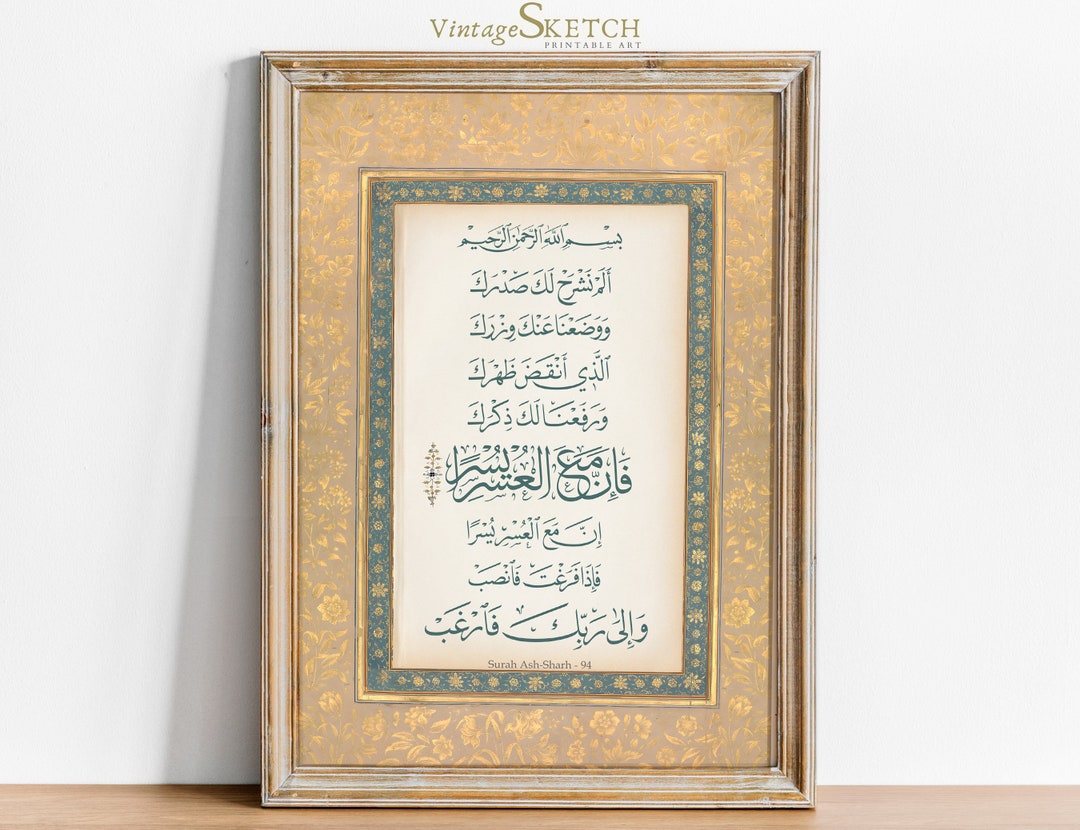 VintageSKETCH
PRINTABLE ART
بِسْمِ اللَّهِ الرَّحْمَٰنِ الرَّحِيمِ
أَلَمْ نَشْرَحْ لَكَ صَدْرَكَ
وَوَضَعْنَا عَنْكَ وِزْرَكَ
الَّذِي أَنْقَضَ ظَهْرَكَ
وَرَفَعْنَا لَكَ ذِكْرَكَ
فَإِنَّ مَعَ الْعُسْرِ يُسْرًا
إِنَّ مَعَ الْعُسْرِ يُسْرًا
فَإِذَا فَرَغْتَ فَانْصَبْ
وَإِلَىٰ رَبِّكَ فَارْغَبْ
Surah Ash-Sharh - 94